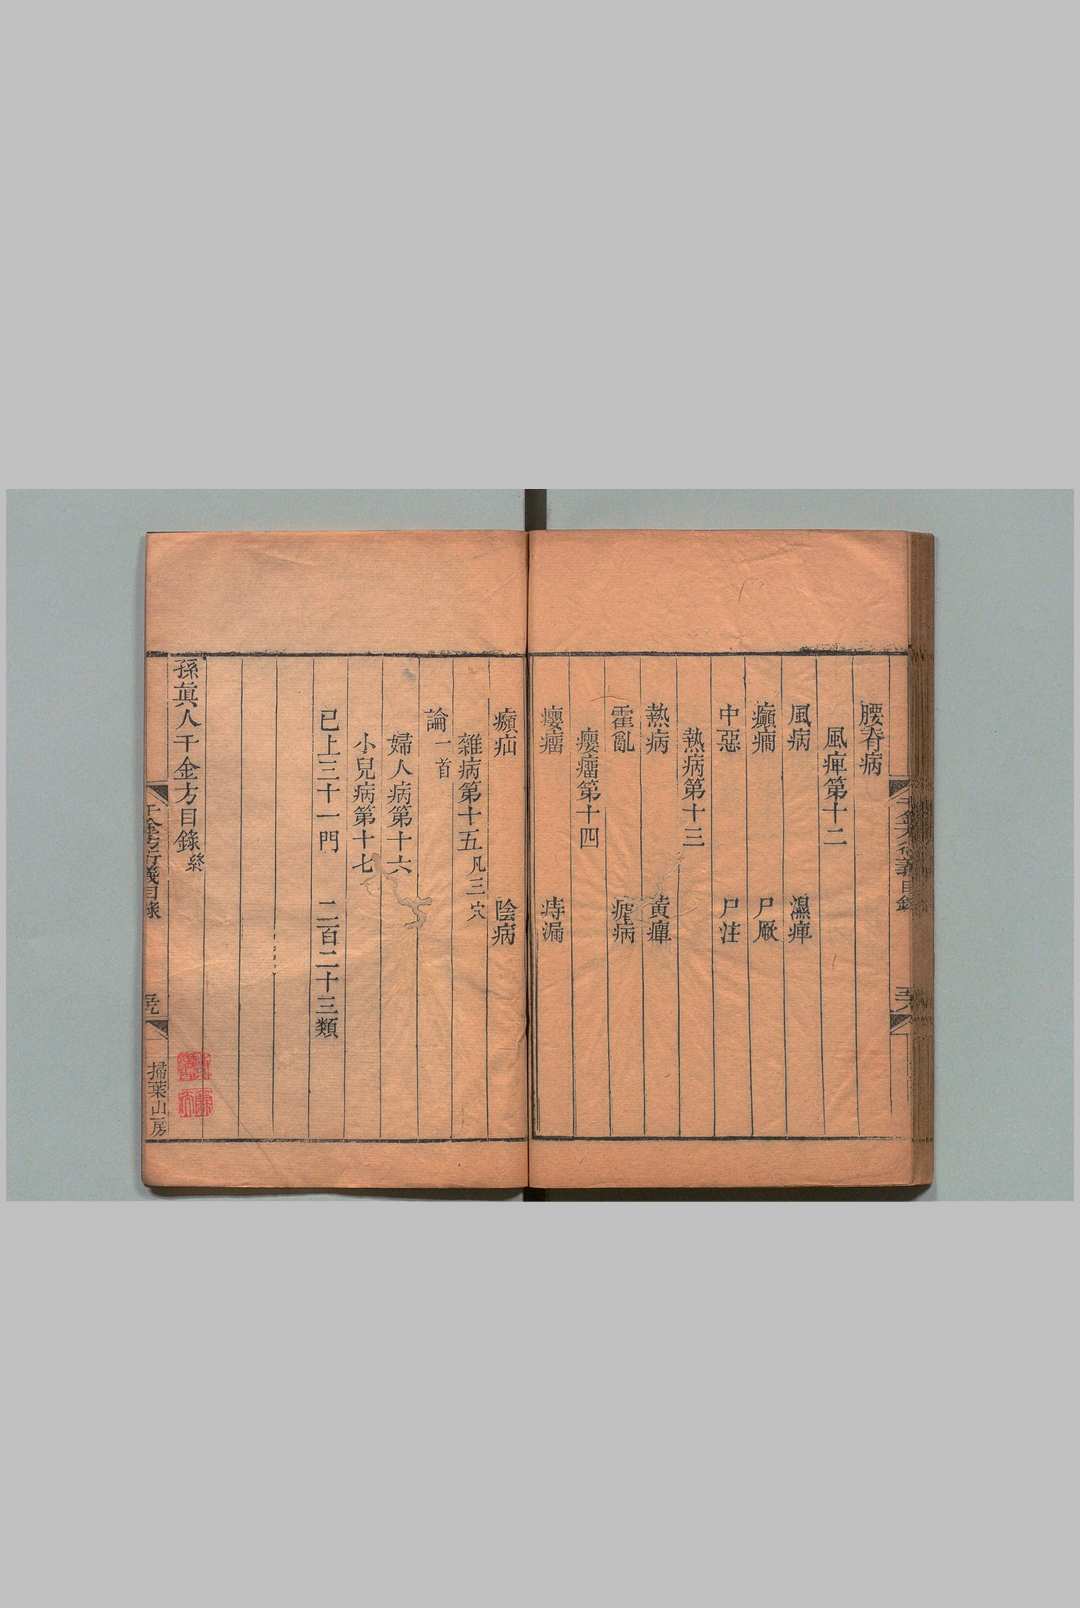 腰脊病
風痺第十二
風病 濕痺
癲癇 尸厥
中惡 尸注
熱病第十三
熱病 黃癉
霍亂 瘧病
癭瘤第十四
癭瘤 痔漏
㿗疝 陰病
雜病第十五 凡三穴
論一首
婦人病第十六
小兒病第十七
已上三十一門 二百二十三類
孫眞人千金方目錄 終
千金方衍義目錄
掃葉山房